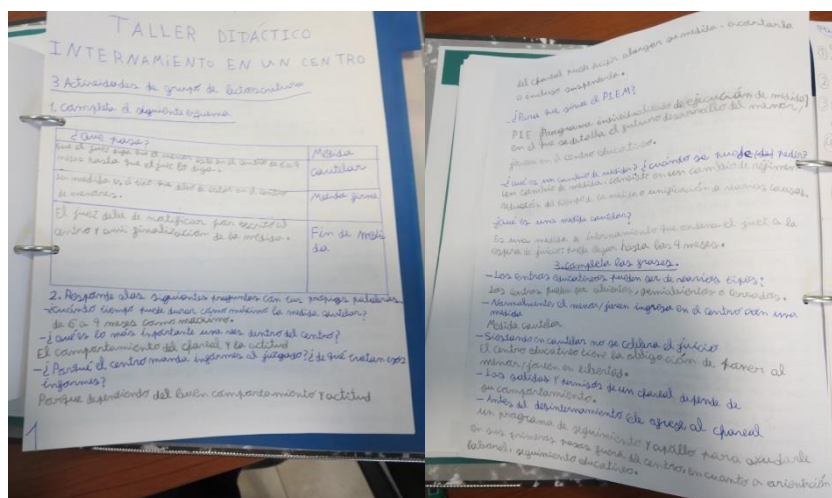 TALLER DIDÁCTICO
INTERNAMIENTO EN UN CENTRO
3 Actividades de grupo de lectoescritura
1. Completa el siguiente esquema
¿Qué pasa?
que el juez diga que el menor este en el centro de 6 a 9
meses hasta que el juez lo diga.
Medida
cautelar
La medida es el tiempo que debe de estar en el centro
de menores.
Medida firme
El juez debe de notificar por escrito al
centro y finalización de la medida.
Fin de medi
da
2. Responde a las siguientes preguntas con tus propias palabras
-¿Cuánto tiempo puede durar como máximo la medida cautelar?
de 6 a 9 meses como máximo.
-¿Qué es lo más importante una vez dentro del centro?
El comportamiento del chaval y la actitud
-¿Porqué el centro manda informes al juzgado? ¿de qué tratan esos
informes?
Porque dependiendo del buen comportamiento y actitud
1
del chaval puede pedir alargar su medida o acortarla
o incluso suspenderla.
-¿Para que sirve el PIEM?
PIE Programa individualizado de ejecución de medida
en el que se detalla el futuro desarrollo del menor/
joven en el centro educativo.
-¿Qué es un cambio de medida? ¿cuándo se puede pedir?
Un cambio de medida, consiste en un cambio de régimen
reducción del tiempo de medida o unificación de varias causas.
¿Qué es una medida cautelar?
Es una medida de internamiento que ordena el juez a la
espera de juicio puede llegar hasta los 9 meses.
3. completa las frases.
-Los centros educativos pueden ser de varios tipos:
Los centros pueden ser abiertos, semiabiertos o cerrados.
-Normalmente el menor/joven ingresa en el centro con una
medida
Medida cautelar
-Si estando en cautelar no se celebra el juicio
El centro educativo tiene la obligación de poner al
menor/joven en libertad.
-Las salidas y permisos de un chaval depende de
su comportamiento.
-Antes del desinternamiento se le ofrece al chaval
un programa de seguimiento y apollo para ayudarle
en sus primeros pasos fuera del centro, en cuanto a orientación
laboral, seguimiento educativo.